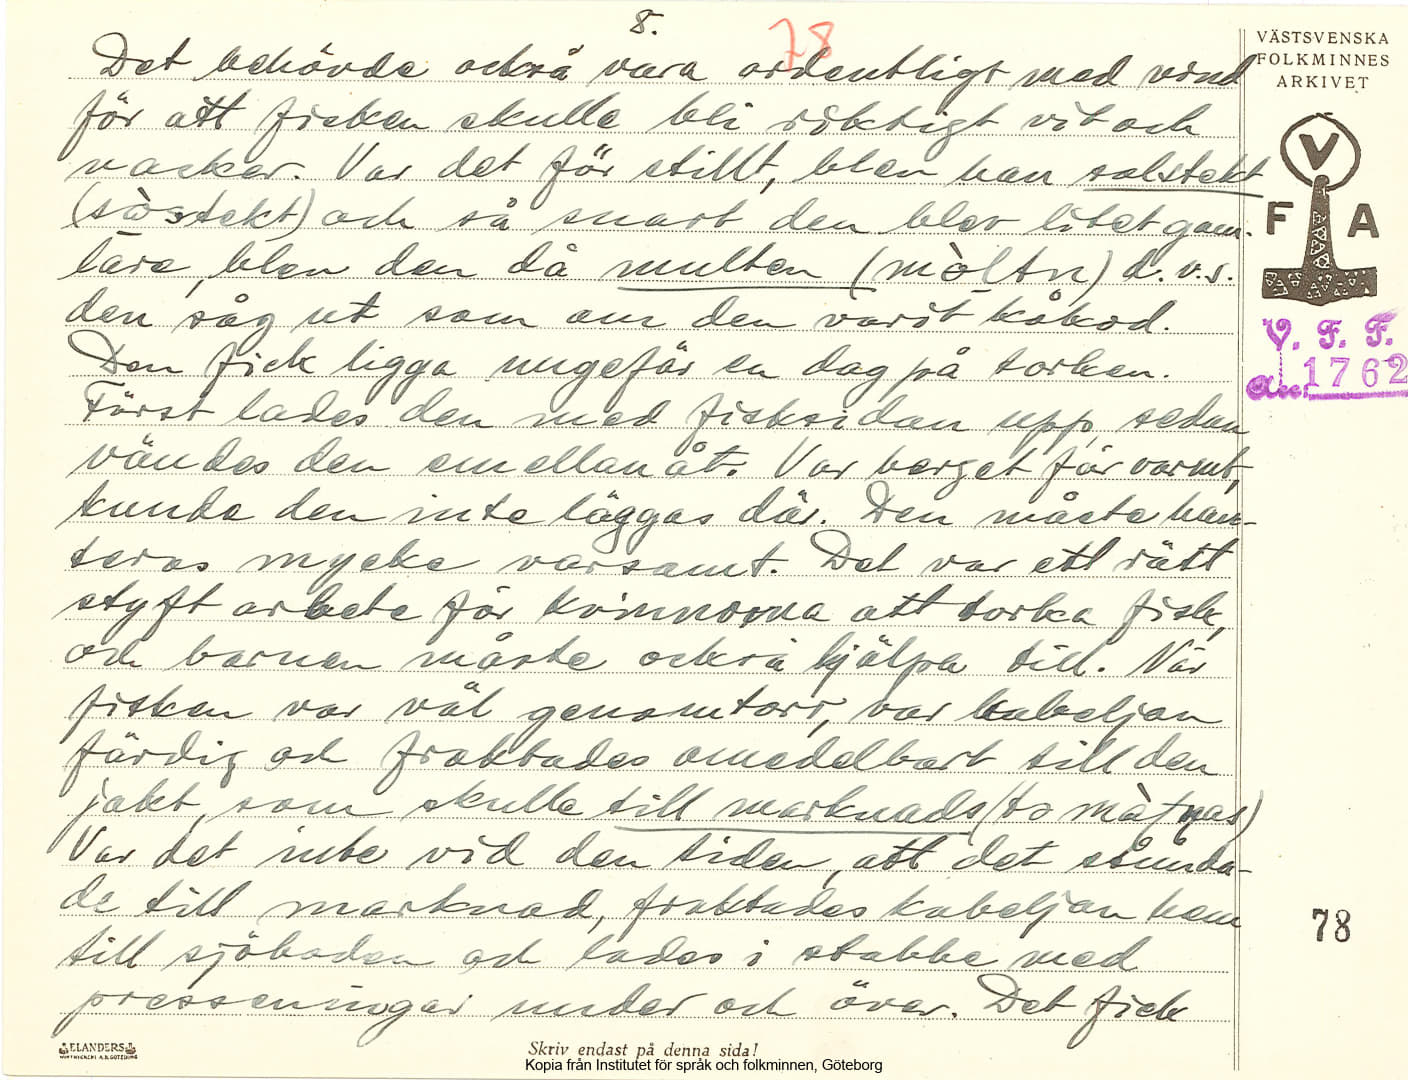 8.
78
VÄSTSVENSKA
FOLKMINNES
ARKIVET
V
F A
V. F. F.
1762
Det behövde också vara ordentligt med vind
för att fisken skulle bli riktigt vit och
vacker. Var det för stillt, blev han solstekt
(sòstekt) och så snart den blev litet gam-
lare, blev den då multen (mòltn) d.v.s.
den såg ut som om den varit kåkad.
Den fick ligga ungefär en dag på torken.
Först lades den med fisksidan upp, sedan
vändes den emellanåt. Var berget för varmt,
kunde den inte läggas där. Den måste han-
teras mycke varsamt. Det var ett rätt
styft arbete för kvinnorna att torka fisk,
och barnen måste också hjälpa till. När
fisken var väl genomtorr, var kabeljon
färdig och fraktades omedelbart till den
jakt, som skulle till marknads
Var det inte vid den tiden, att det stunda-
de till marknad, fraktades kabeljon hem
till sjöboden och lades i stabbe med
presseningar under och över. Det fick
78
ELANDERS
Skriv endast på denna sida!
Kopia från Institutet för språk och folkminnen, Göteborg